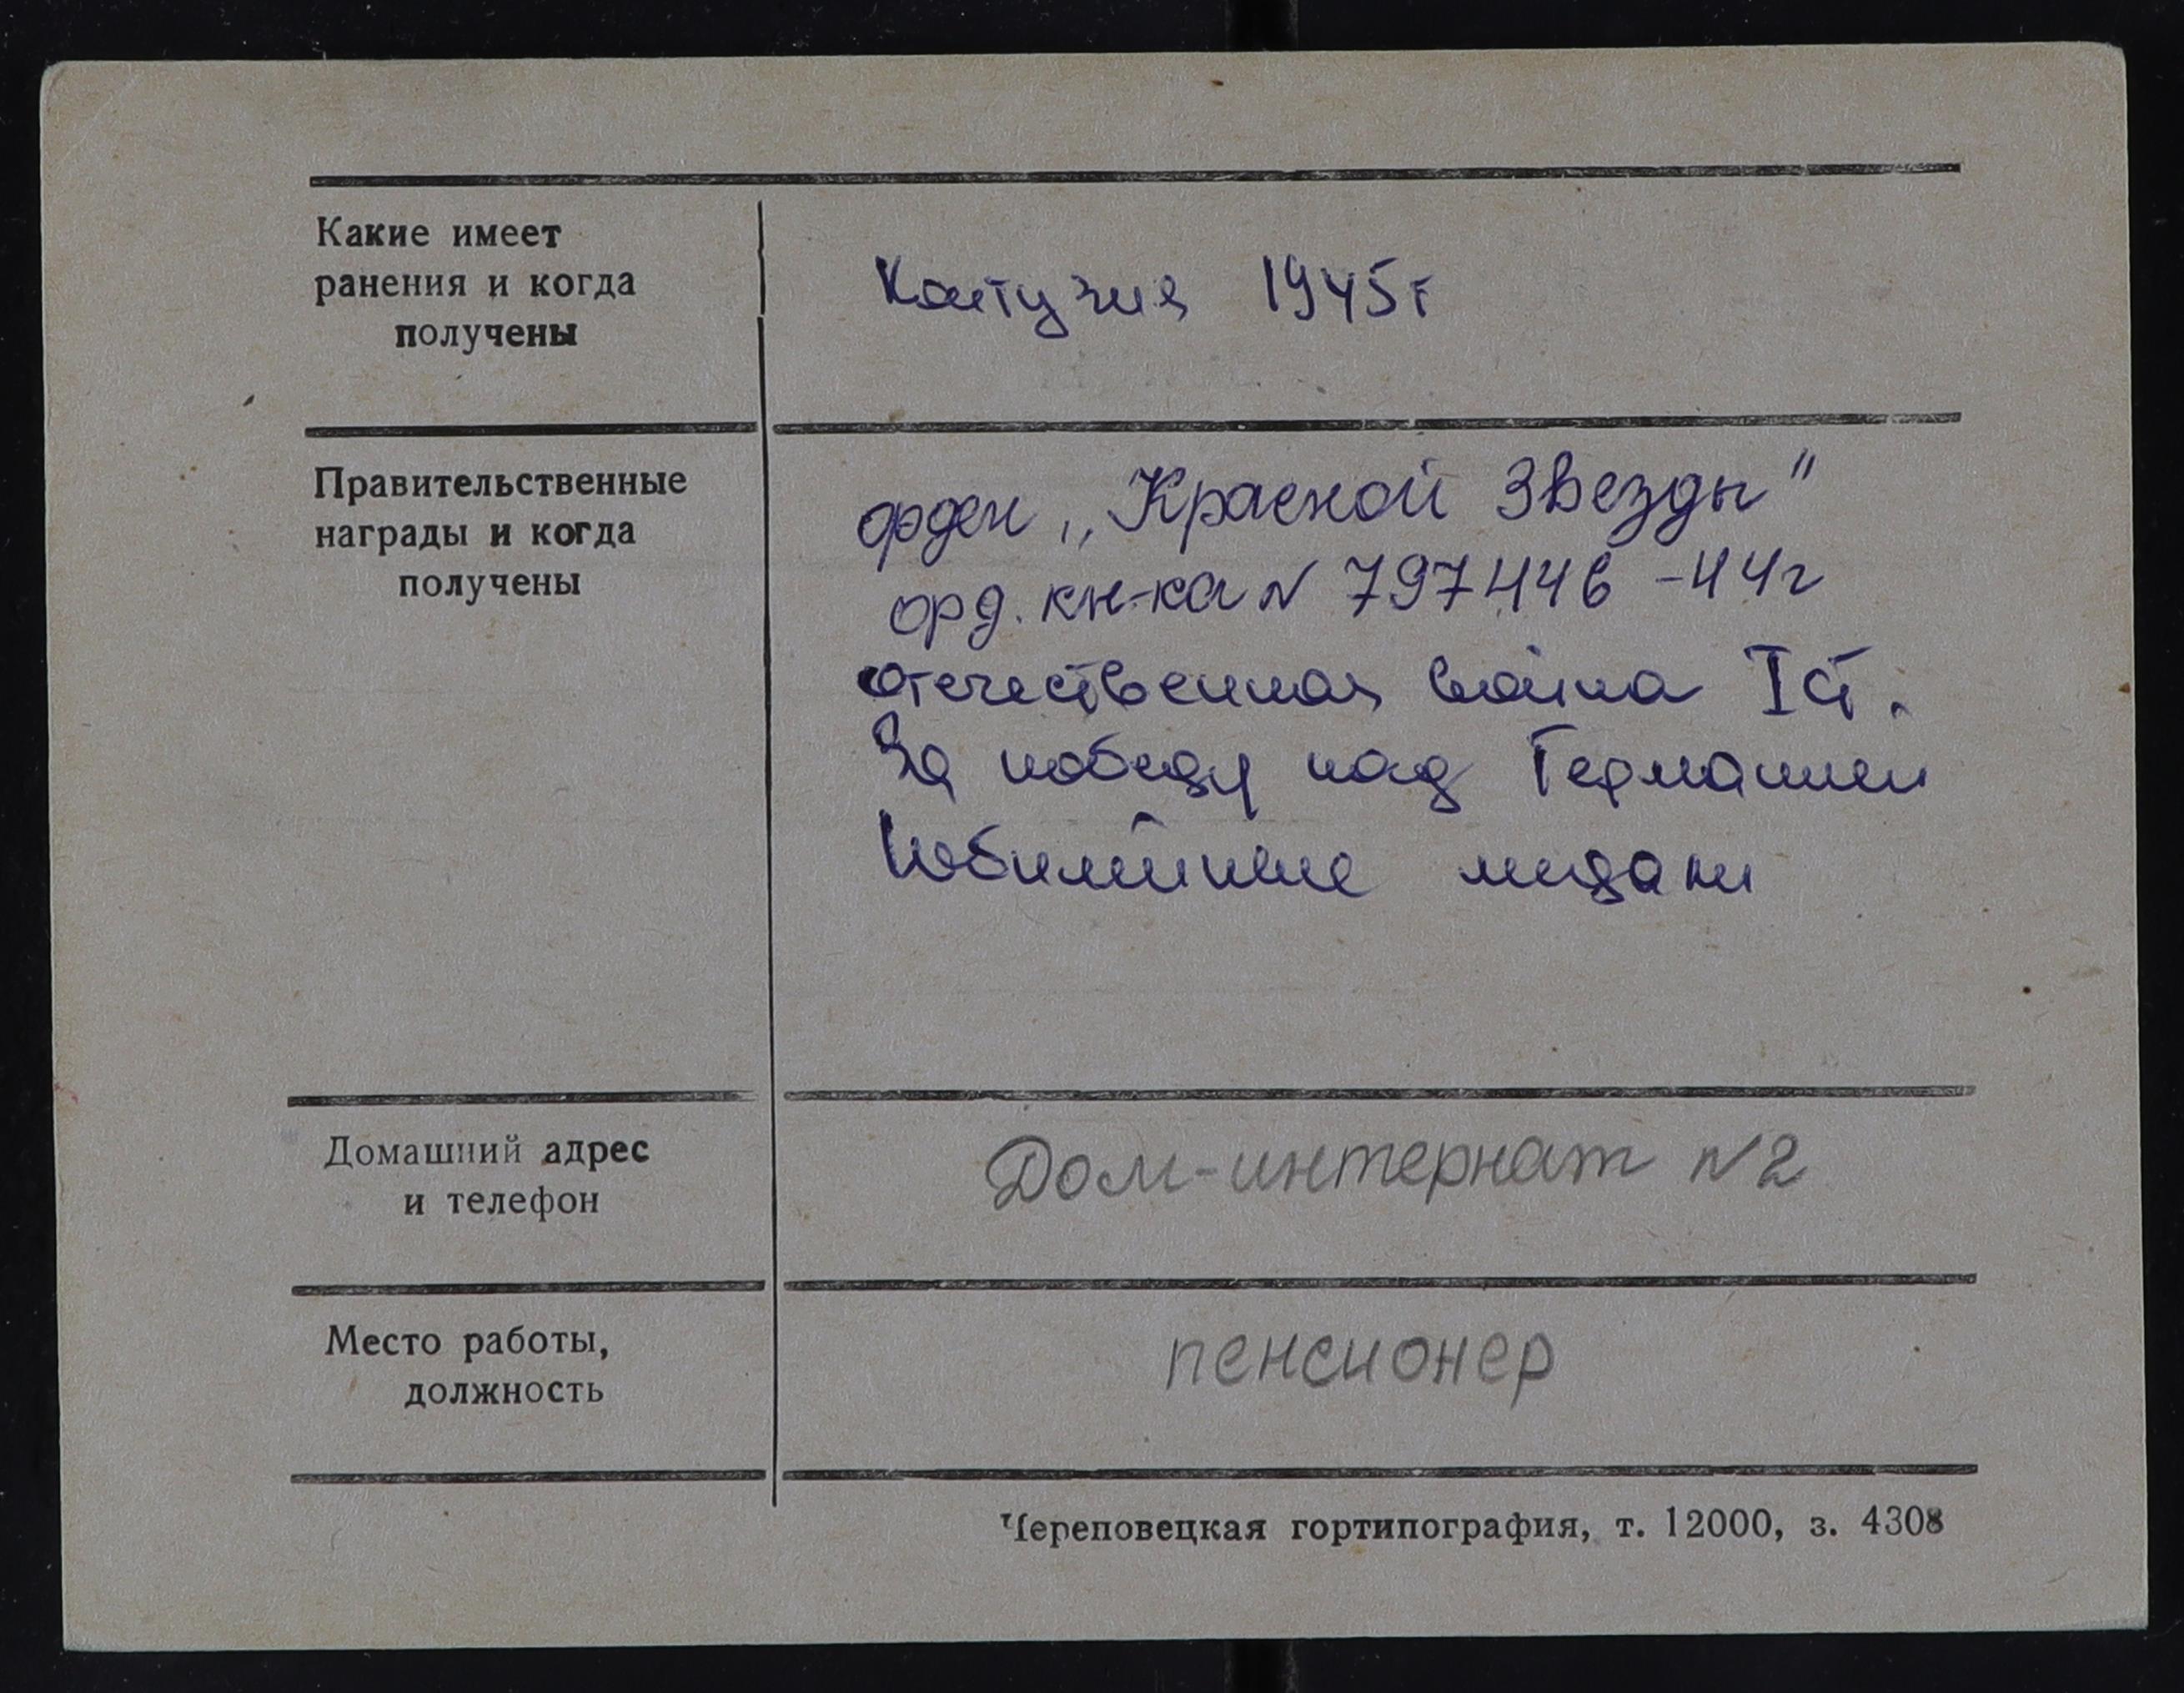 Какие имеет
ранения и когда
получены
Контузия 1945г
Правительственные
награды и когда
получены
орден „Красной Звезды"
орд. кн-ка N 797446 -44г
отечественная война I ст.
За победу над Германией
Юбилейные медали
Домашний адрес
и телефон
Дом-интернат N2
Место работы,
должность
пенсионер
Череповецкая гортипография, т. 12000, з. 4308